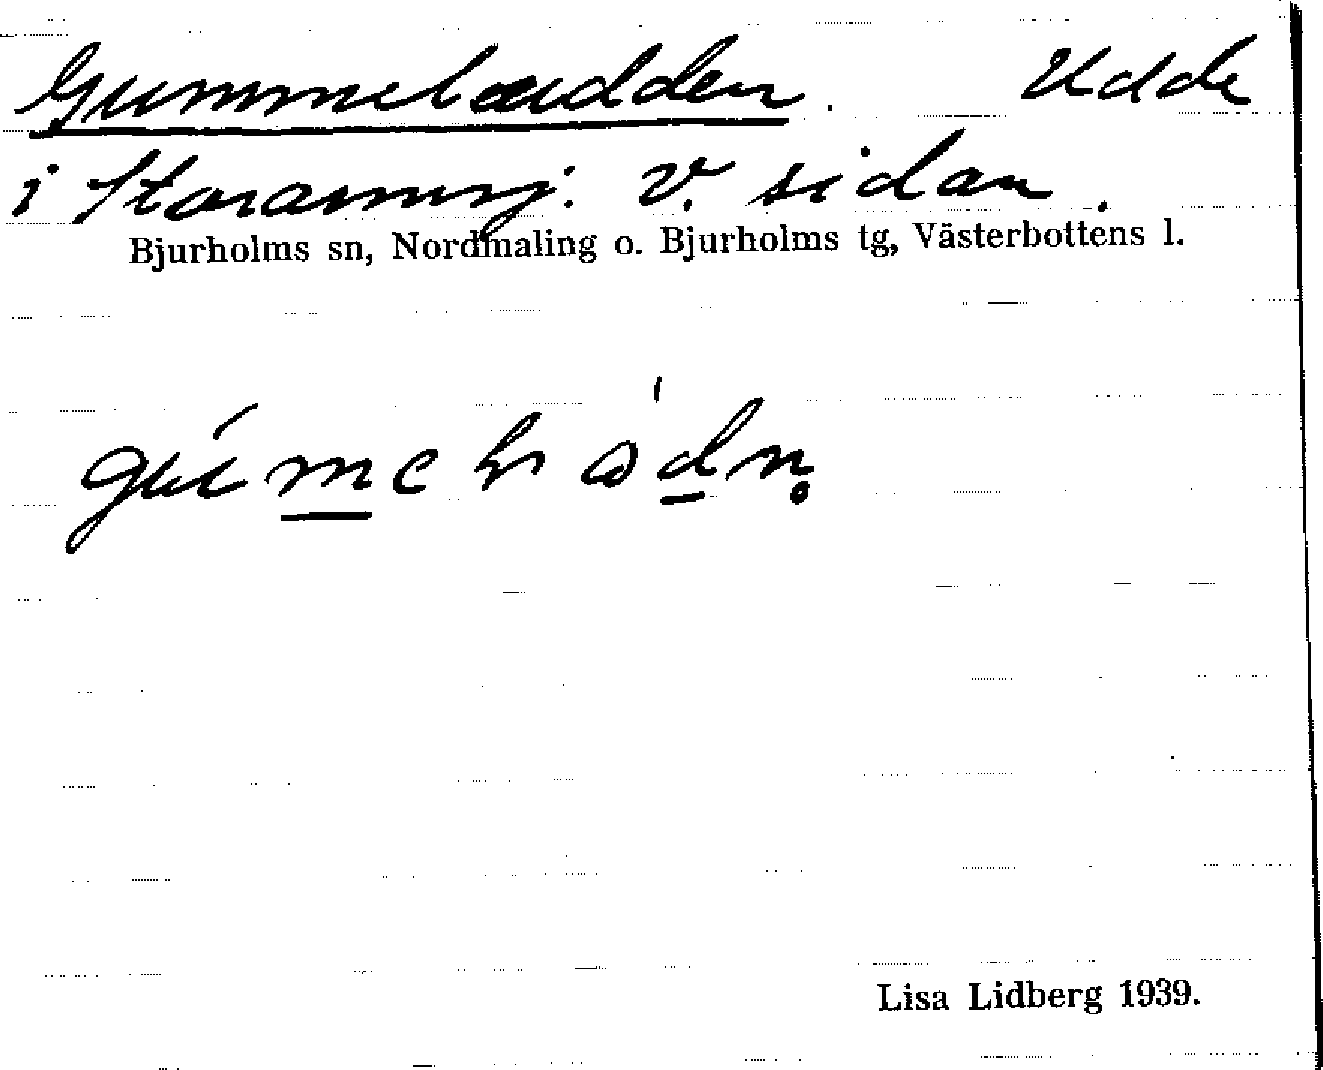 Gummelœudden. Udde
i Storarmsj. V. sidan.
Bjurholms sn, Nordmaling o. Bjurholms tg, Västerbottens l.
Lisa Lidberg 1939.